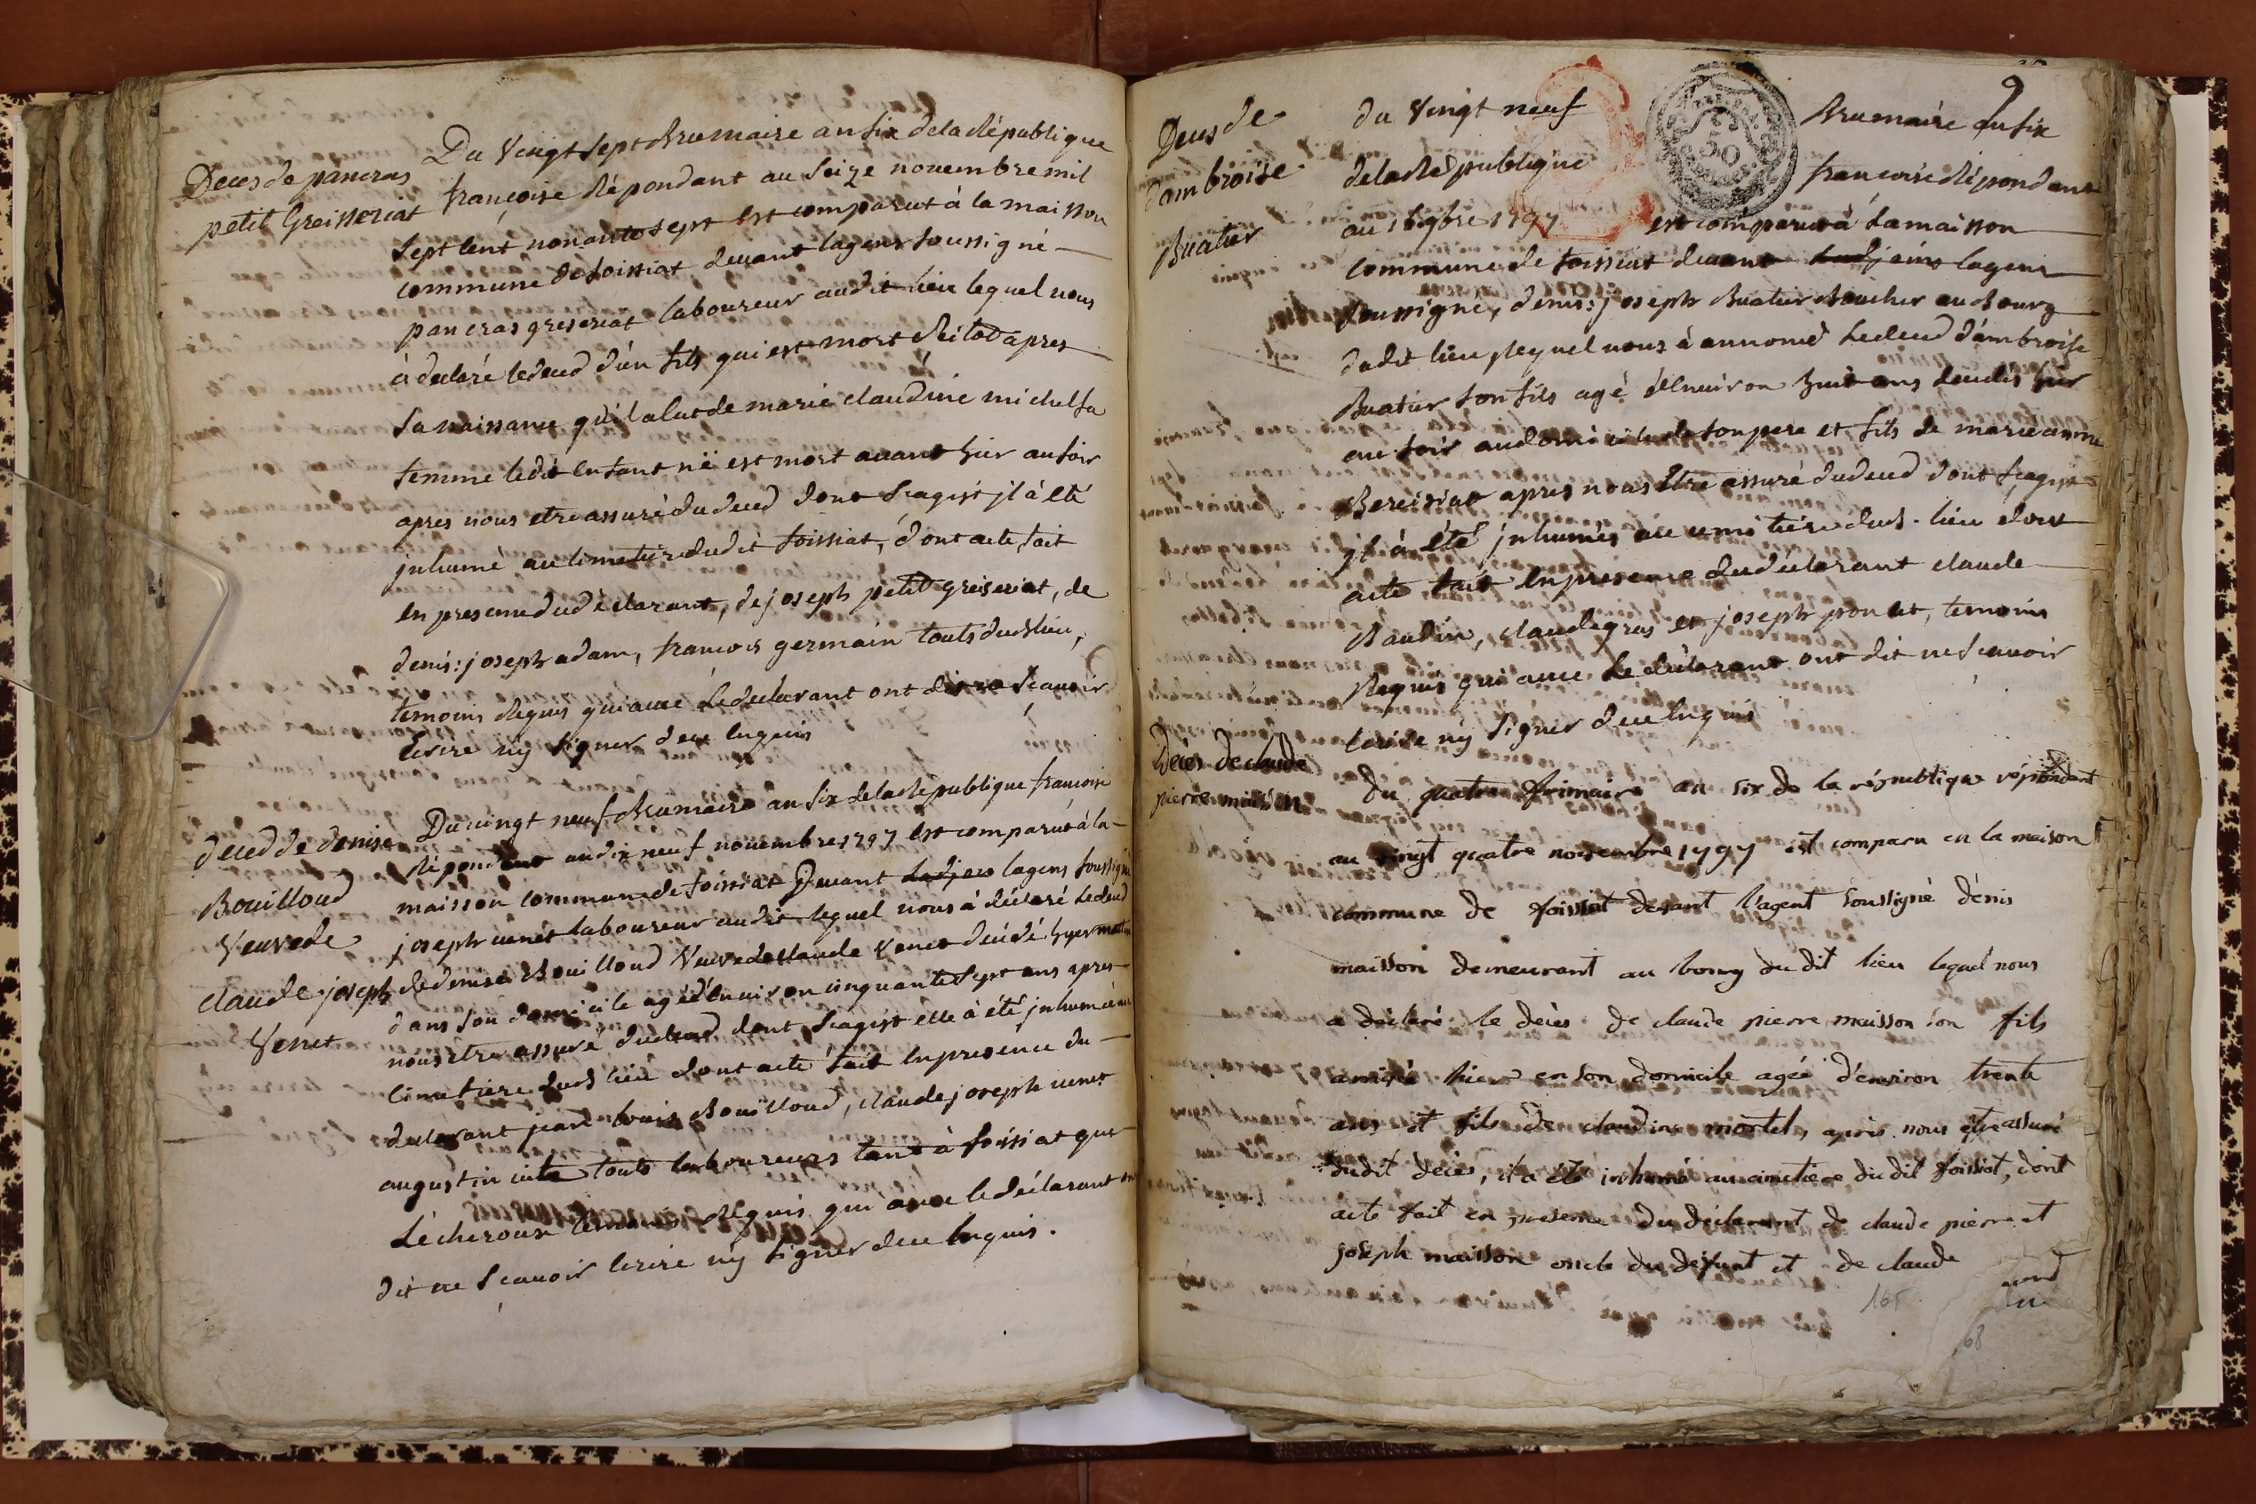 Deces de pancras
petit Greisseriat
Du vingt sept Brumaire an six dela République
françoise Répondant au seize novembre mil
sept cent nonante sept est comparut à la maisson
commune de foissiat devant lagent soussigné
pancras greseriat laboureur audit lieu lequel nous
à declaré le deced d'un fils qui est mort Reitot apres
sa naissance qu'il a eut de marie claudine michel sa
femme ledit enfant né est mort avant hier au soir
apres nous etre assuré du deced dont sagist jl à eté
jnhumé au cimetiere dudit foissiat, dont acte fait
en presence du déclarant, de joseph petit greiseriat, de
denis: joseph adam, francois germain touts dud lieu,
temoins Requis qui avec le declarant ont dit ne scavoir
ecrire ny signer de ce enquis
deced de denise
Bouilloud
veuve de
claude joseph
venet
Du vingt neuf Brumaire an six dela Republique francoise
Répondant au dix neuf novembre 1797 est comparut à la
maisson commune de foissiat Devant lagent soussigné
joseph venet laboureur audit lequel nous à déclaré le deced
de denise Bouilloud veuve de claude venet decédé hyer matin
dans son domicile agé d'environ cinquante sept ans apres
nous etre assuré du deced dont sagist elle à été jnhumée au
cimetiere dud lieu dont acte fait en presence du
declarant jean louis Bouilloud, claude joseph venet
augustin touts laboureurs tant à foissiat que
Lécheroux temoins Requis qui avec le déclarant ont
dit ne scavoir ecrire ny signer de ce enquis.
9
50
Deces de
d'ambroise
Buatier
du vingt neuf Brumaire an six
dela République francoise Répondant
au 19 9bre 1797 est comparut à la maisson
commune de foissiat devant lagent
soussigné, denis: joseph Buatier Boucher au Bourg
dudit lieu lequel nous à annoncé le deced d'ambroise
Buatier son fils agé d'environ huit ans decedé hier
au soir au domicile de son pere et fils de marie anne
Bereisiat apres nous etre assuré du deced dont sagist
jl à été jnhumé au cimetiére dud. lieu dont
acte fait en presence du declarant claude
Baudin, claude gras et joseph poncet, temoins
Requis qui avec le declarant ont dit ne scavoir
ecrire ny signer de ce enquis
Décès de claude
pierre maisson
du quatre frimaire an six de la république répondant
au vingt quatre novembre 1797 est comparu en la maison
commune de foissiat devant l'agent soussigné denis
maisson demeurant au bourg du dit lieu lequel nous
a déclaré le décès de claude pierre maisson son fils
arrivé hier en son domicile agée d'environ trente
ans et fils de claudine mortel, après nous être assuré
dudit décès, il a été inhumé au cimetière du dit foissiat, dont
acte fait en presence du déclarant de claude pierre et
joseph maisson oncle du défunt et de claude
165
68